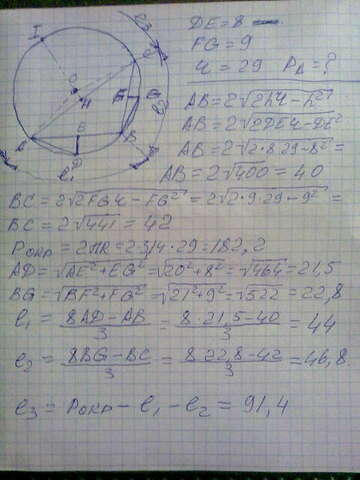 DE = 8
FG = 9
r = 29 P△ = ?
AB = 2√2hr - h²
AB = 2√2DEr - DE²
AB = 2√2·8·29 - 8² =
AB = 2√400 = 40
BC = 2√2FGr - FG² = 2√2·9·29 - 9² =
BC = 2√441 = 42
Pокр = 2πR = 2·3,14·29 = 182,2
AD = √AE² + EG² = √20² + 8² = √464 = 21,5
BG = √BF² + FG² = √21² + 9² = √522 = 22,8
l₁ = (8AD - AB)/3 = (8·21,5 - 40)/3 = 44
l₂ = (8BG - BC)/3 = (8·22,8 - 42)/3 = 46,8
l₃ = Pокр - l₁ - l₂ = 91,4